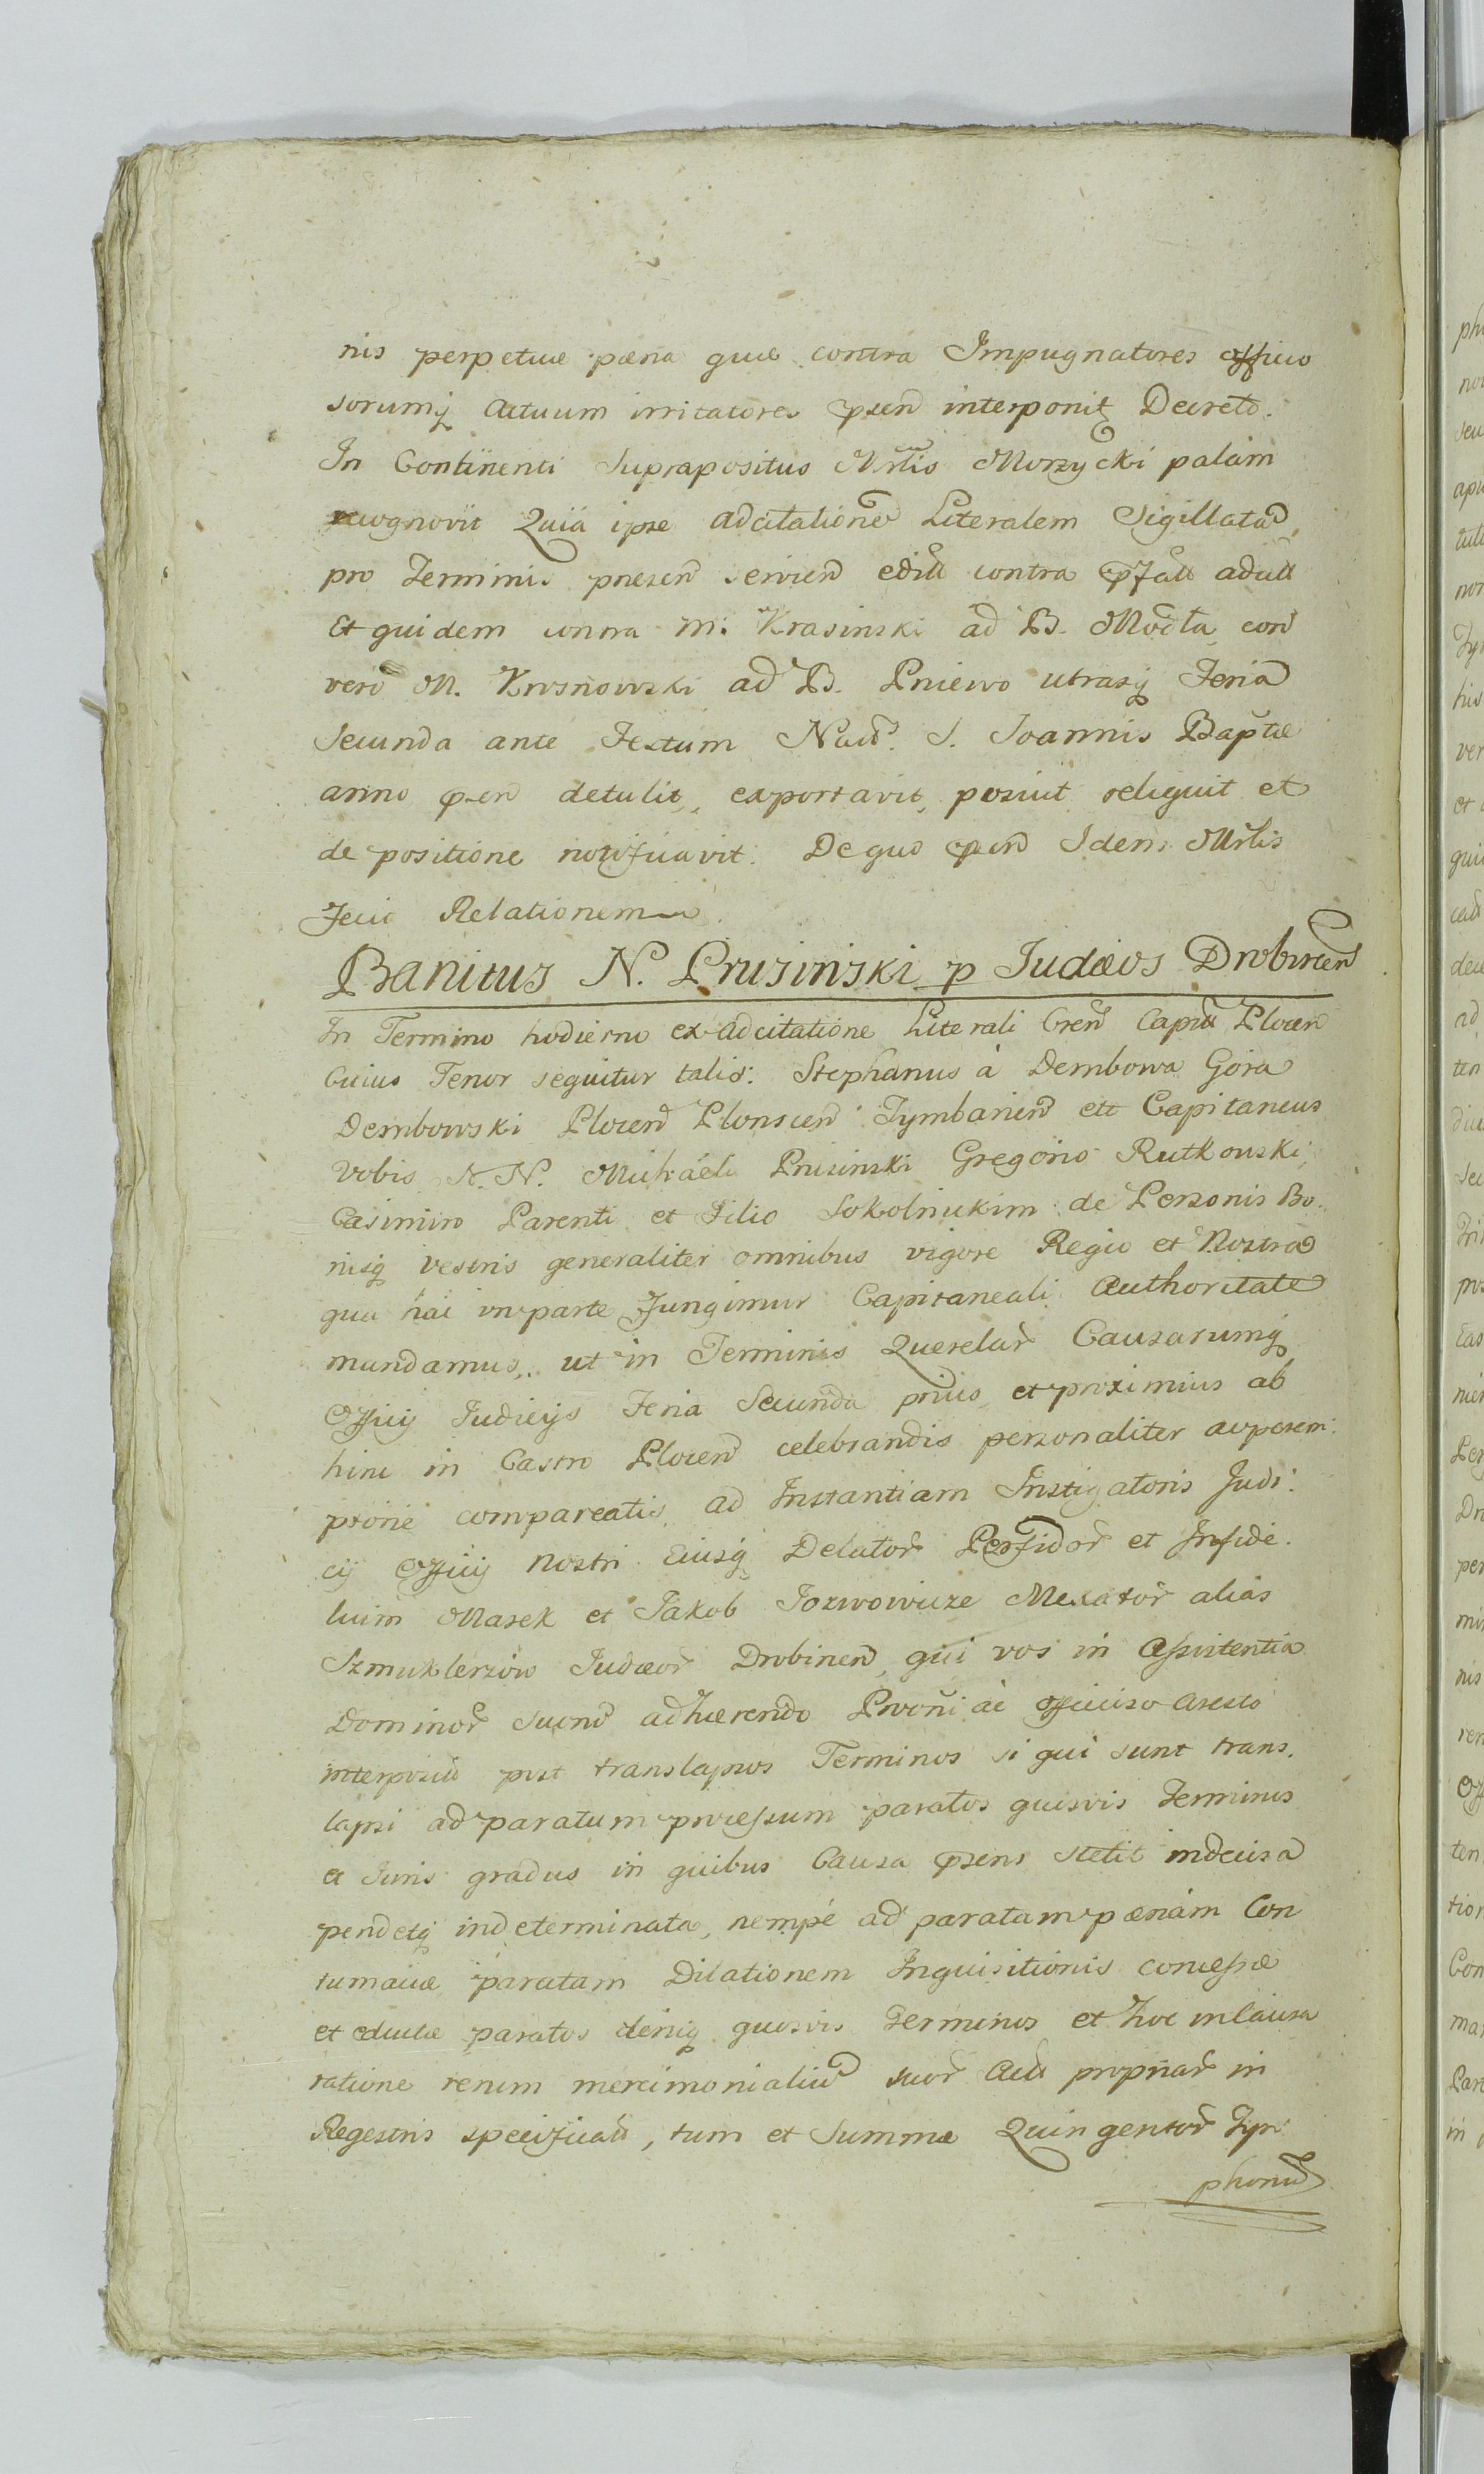 nis perpetuæ pæna quæ contra Impugnatores officio
sorumq Actuum irritatores pnsen interponit Decreto.
In Continenti Suprapositus Mrlis Morzycki palam
recognovit Quia ipse adcitatione Literalem Sigillatam
pro Terminis presen servien edit contra adcit
Et quidem contra M. Krasinski ad B. Modła con
vero M. Krosnowski ad B. Pniewo utrasq Feria
Secunda ante Festum Nativ. S. Joannis Baptæ
anno psen detulit, exportavit, posuit reliquit et
de positione notificavit. De quo Idem Mrlis
Fecit Relationem.
Banitus N. Prusinski p Judæos Drobinen
In Termino hodierno ex adcitatione Literali Cren Capit Plocen
Cuius Tenor sequitur talis: Stephanus à Dembowa Góra
Dembowski Plocen Plonscen Tymbarien ett Capitaneus
Vobis N. N. Michaeli Prusinski Gregorio Rutkowski,
Casimiro Parenti et Filio Sokolnickim de Personis Bo
nisq vestris generaliter omnibus vigore Regio et Nostra
qua hac in parte Fungimur Capitaneali Authoritate
mandamus, ut in Terminis Querelar Causarumq
Officij Judicijs Feria Secunda prius et proximius ab
hinc in Castro Plocen celebrandis personaliter ac perem
ptorie compareatis ad Instantiam Instigatoris Judi
cij Officij Nostri Eiusq Delator Perfidor et Infide
lium Marek et Jakob Jozwowicze Mercator alias
Szmuklerzow Judæor Drobinen, qui vos in Assistentia
Dominor Suor adhærendo Provoni ac officioso Aresto
interposito post translapsos Terminos si qui sunt trans
lapsi ad paratum processum paratos quosvis Terminos
et Juris gradus in quibus Causa psens stetit indecisa
pendetq indeterminata, nempe ad paratam pænam Con
tumaciæ paratam Dilationem Inquisitionis concessæ
et eductæ paratos deniq quosvis Terminos et hoc in Causa
ratione rerum mercimonialium suor Actt propriar in
Regestris specificatt, tum et Summæ Quingentor Tyn
phonu